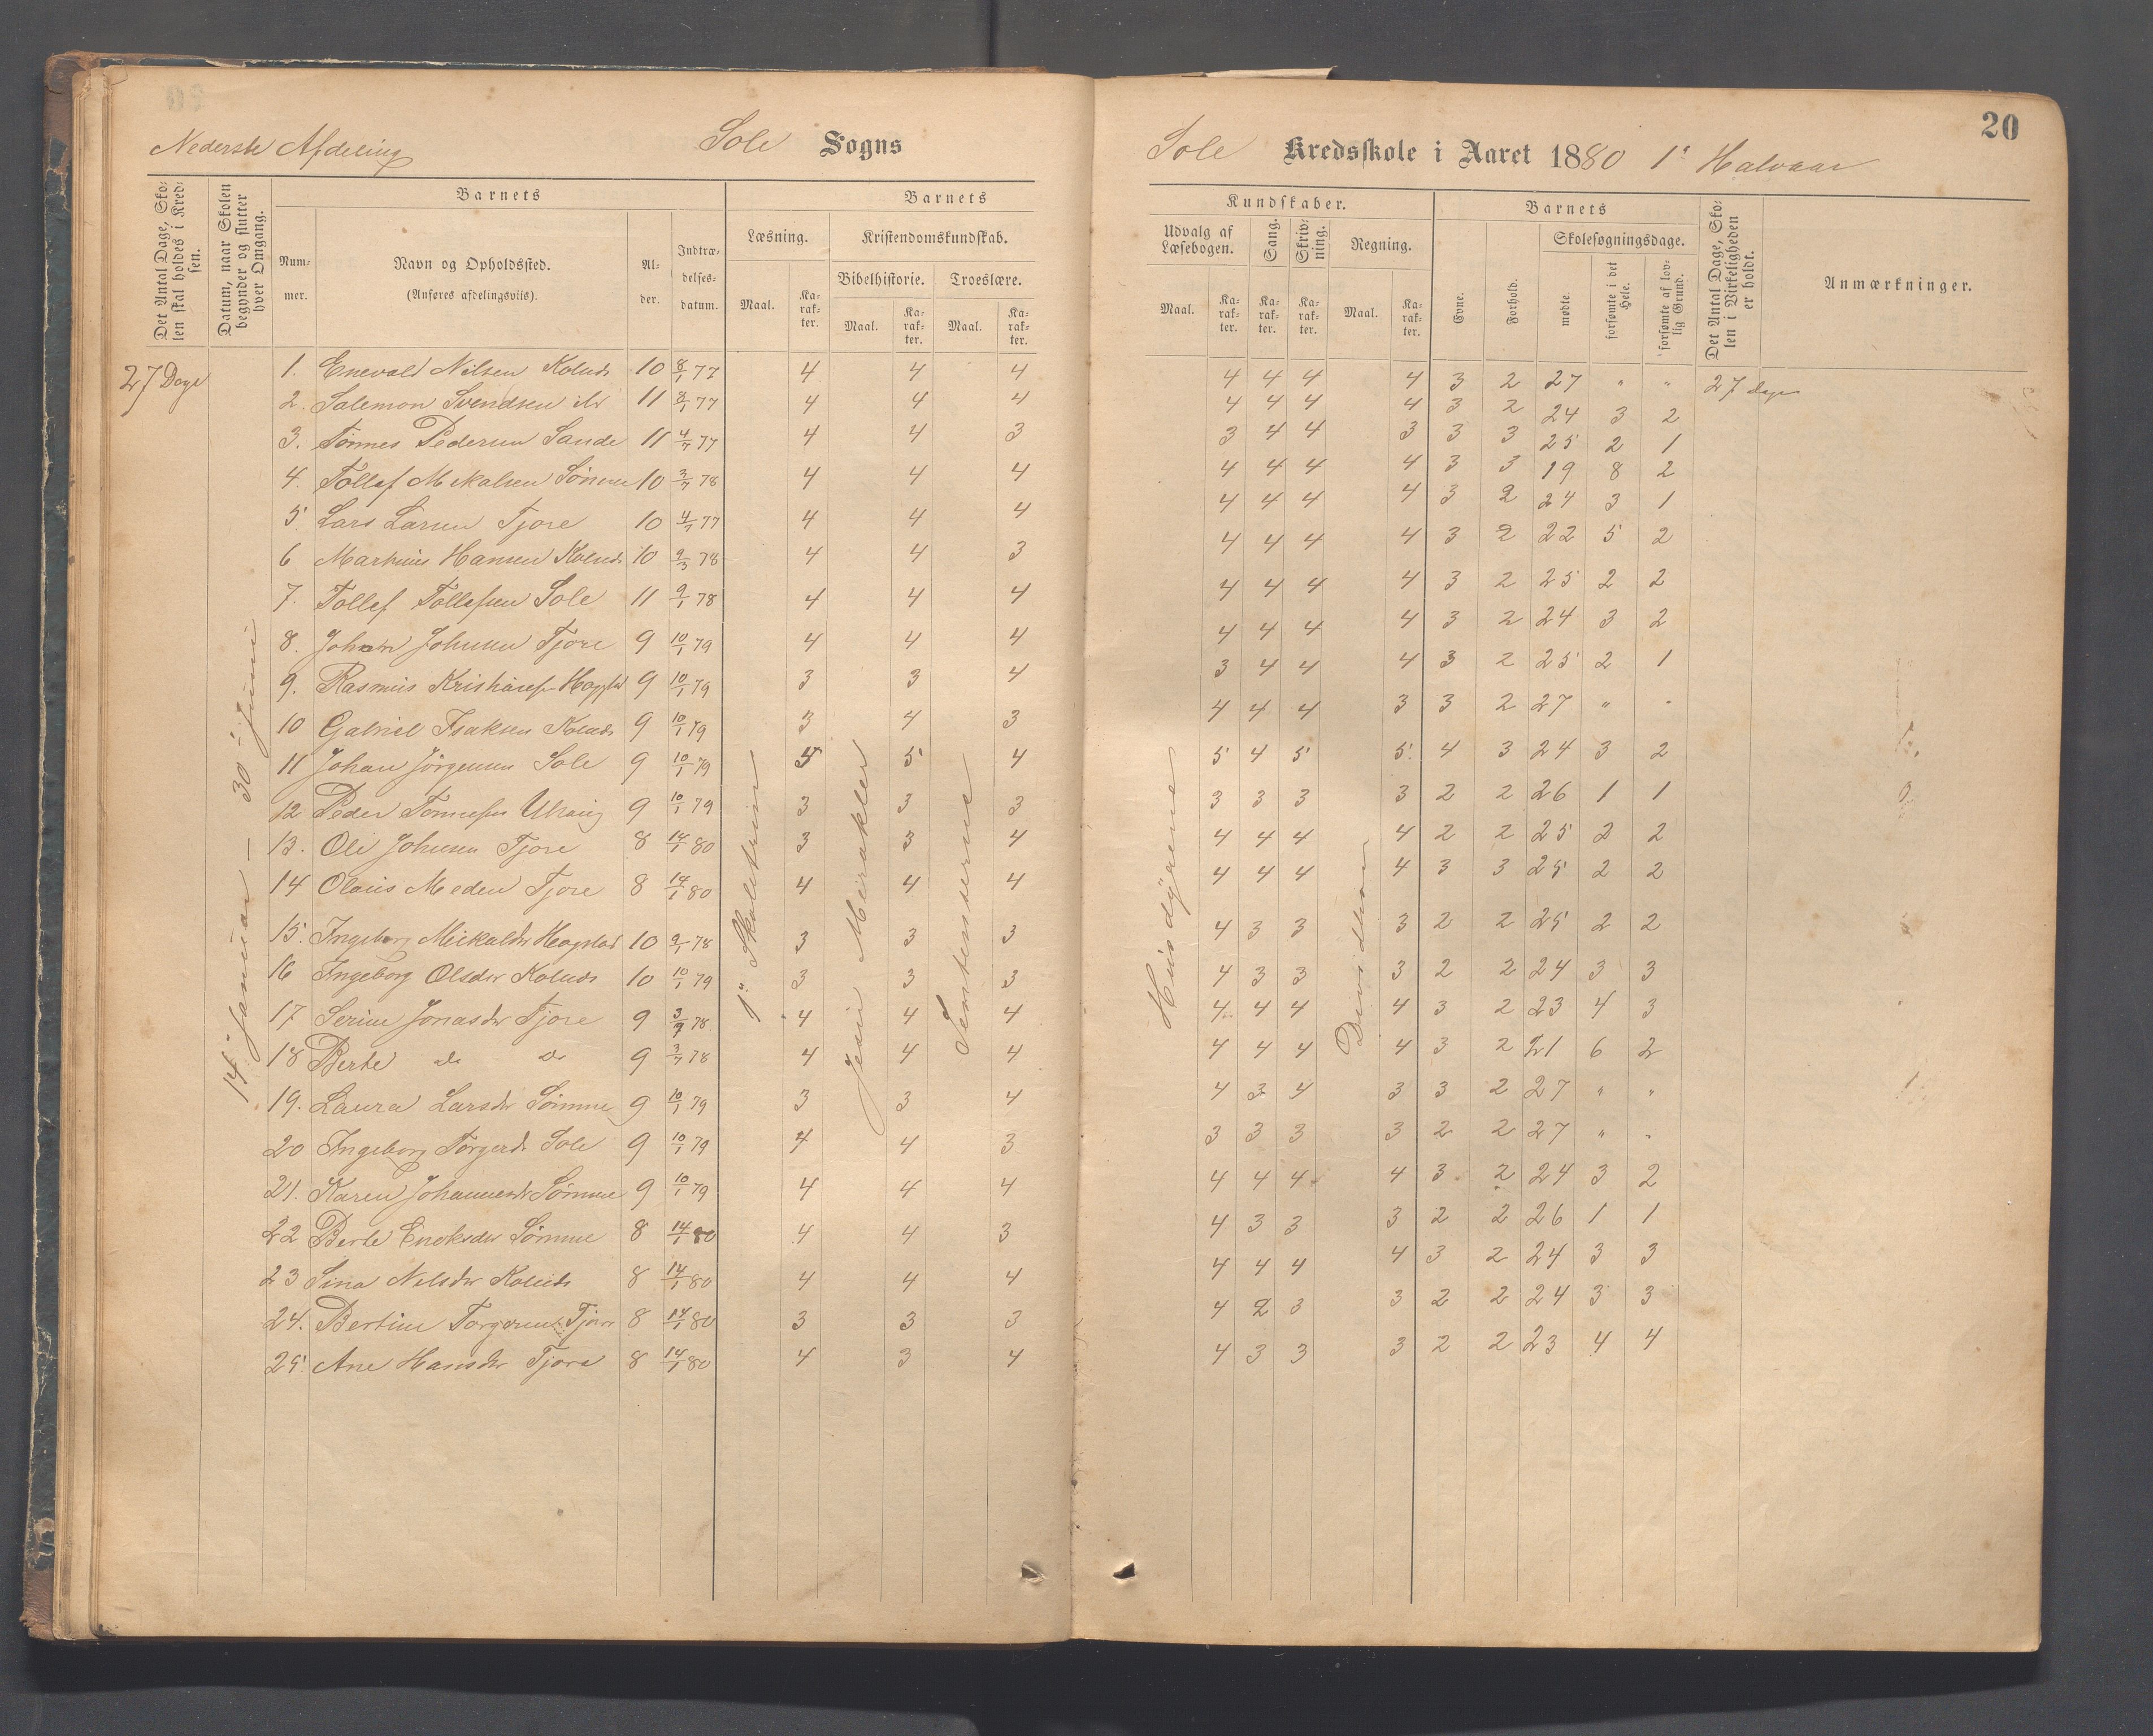 20
Nederste Afdeling Sole Sogns
Sole Kredsskole i Aaret 1880 1ste Halvaar
Det Antal Dage, Skolen skal holdes i Kredsen.
Datum, naar Skolen begynder og slutter hver Omgang.
Barnets
Nummer.
Navn og Opholdssted.
(Anføres afdelingsviis).
Alder.
Indtrædelsesdatum.
Barnets
Læsning.
Kristendomskundskab.
Bibelhistorie. Troeslære.
Maal. Karakter. Maal. Karakter. Maal. Karakter.
Kundskaber.
Udvalg af Læsebogen.
Sang.
Skrivning.
Regning.
Maal. Karakter. Karakter. Karakter. Maal. Karakter.
Barnets
Evne.
Forhold.
Skolesøgningsdage.
mødte.
forsømte i det Hele.
forsømte af lovlig Grund.
Det Antal Dage, Skolen i Virkeligheden er holdt.
Anmærkninger.
27 Dage
14 Januar — 30 Juni
Skoletrin
Jesu Mirakler
Husdyrene
1. Enevald Nilsen 10 8/1 77 4 4 4 4 4 4 4 3 2 27 " " 27 dage
2. Salemon Svendsen 11 8/1 77 4 4 4 4 4 4 4 3 2 24 3 2
3. Tönnes Pedersen Sande 11 4/7 77 4 4 3 3 4 4 3 3 3 25 2 1
4. Tollef Mikalsen Sömme 10 3/7 78 4 4 4 4 4 4 4 3 3 19 8 2
5. Lars Larsen Tjore 10 4/7 77 4 4 4 4 4 4 4 3 2 24 3 1
6 Markus Hansen 10 9/3 78 4 4 3 4 4 4 4 3 2 22 5 2
7. Tollef Tollefsen Sole 11 9/1 78 4 4 4 4 4 4 4 3 2 25 2 2
8. Johan Johnsen Tjore 9 10/1 79 4 4 4 4 4 4 4 3 2 24 3 2
9. Rasmus 9 10/1 79 3 3 4 3 4 4 4 3 2 25 2 1
10 Gabriel Isaksen 9 10/1 79 3 4 3 4 4 4 3 3 2 27 " "
11 Johan Jörgensen Sole 9 10/1 79 5 5 4 5 4 5 5 4 3 24 3 2
12 Peder Tönnesen 9 10/1 79 3 3 3 3 3 3 3 2 2 26 1 1
13. Ole Johnsen Tjore 8 14/1 80 3 3 4 4 4 4 4 2 2 25 2 2
14 Olaus Tjore 8 14/1 80 4 4 4 4 4 4 4 3 3 25 2 2
15. Ingeborg 10 9/1 78 3 3 3 4 3 3 3 2 2 25 2 2
16 Ingeborg Olsdtr 10 10/1 79 3 3 3 4 3 3 3 2 2 24 3 3
17 Serine Jonasdtr Tjore 9 3/7 78 4 4 4 4 4 4 4 3 2 23 4 3
18 Berte do do 9 3/7 78 4 4 4 4 4 4 4 3 2 21 6 2
19. Laura Larsdtr Sömme 9 10/1 79 3 3 4 4 3 4 3 3 2 27 " "
20 Ingeborg Torgersdtr Sole 9 10/1 79 4 4 3 3 3 3 3 2 2 27 " "
21. Karen Johannesdtr Sömme 9 10/1 79 4 4 4 4 4 4 4 3 2 24 3 2
22 Berte Sömme 8 14/1 80 4 4 3 4 3 3 3 2 2 26 1 1
23 Sina Nilsdtr 8 14/1 80 4 4 4 4 4 4 4 3 2 24 3 3
24. Bertine Tjore 8 14/1 80 3 3 3 4 2 3 3 2 2 24 3 3
25. Ane Hansdtr Tjora 8 14/1 80 4 3 4 4 3 3 3 2 2 23 4 4